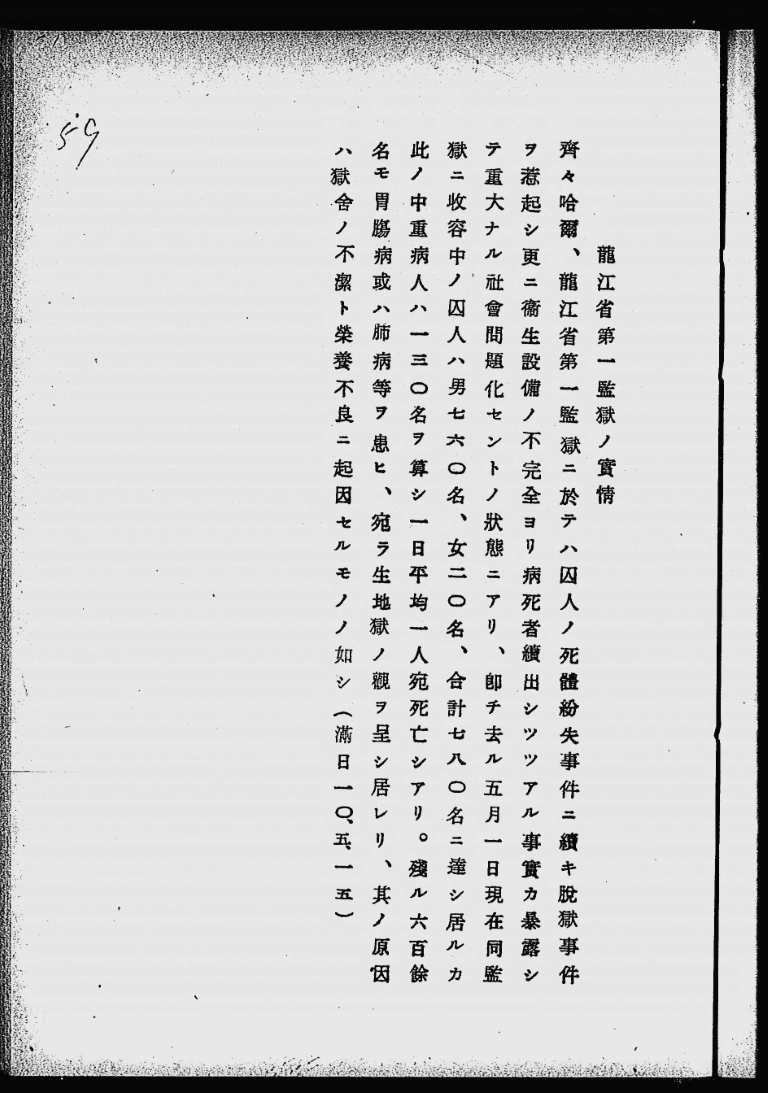 龍江省第一監獄ノ實情
齊々哈爾、龍江省第一監獄ニ於テハ囚人ノ死體紛失事件ニ續キ脫獄事件
ヲ惹起シ更ニ衞生設備ノ不完全ヨリ病死者續出シツツアル事實カ暴露シ
テ重大ナル社會問題化セントノ狀態ニアリ、卽チ去ル五月一日現在同監
獄ニ收容中ノ囚人ハ男七六〇名、女二〇名、合計七八〇名ニ達シ居ルカ
此ノ中重病人ハ一三〇名ヲ算シ一日平均一人宛死亡シアリ。殘ル六百餘
名モ胃膓病或ハ肺病等ヲ患ヒ、宛ラ生地獄ノ觀ヲ呈シ居レリ、其ノ原因
ハ獄舍ノ不潔ト榮養不良ニ起因セルモノノ如シ(滿日一〇、五、一五)
59